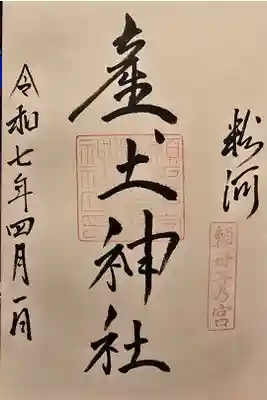 粉河
産土神社
令和七年四月一日